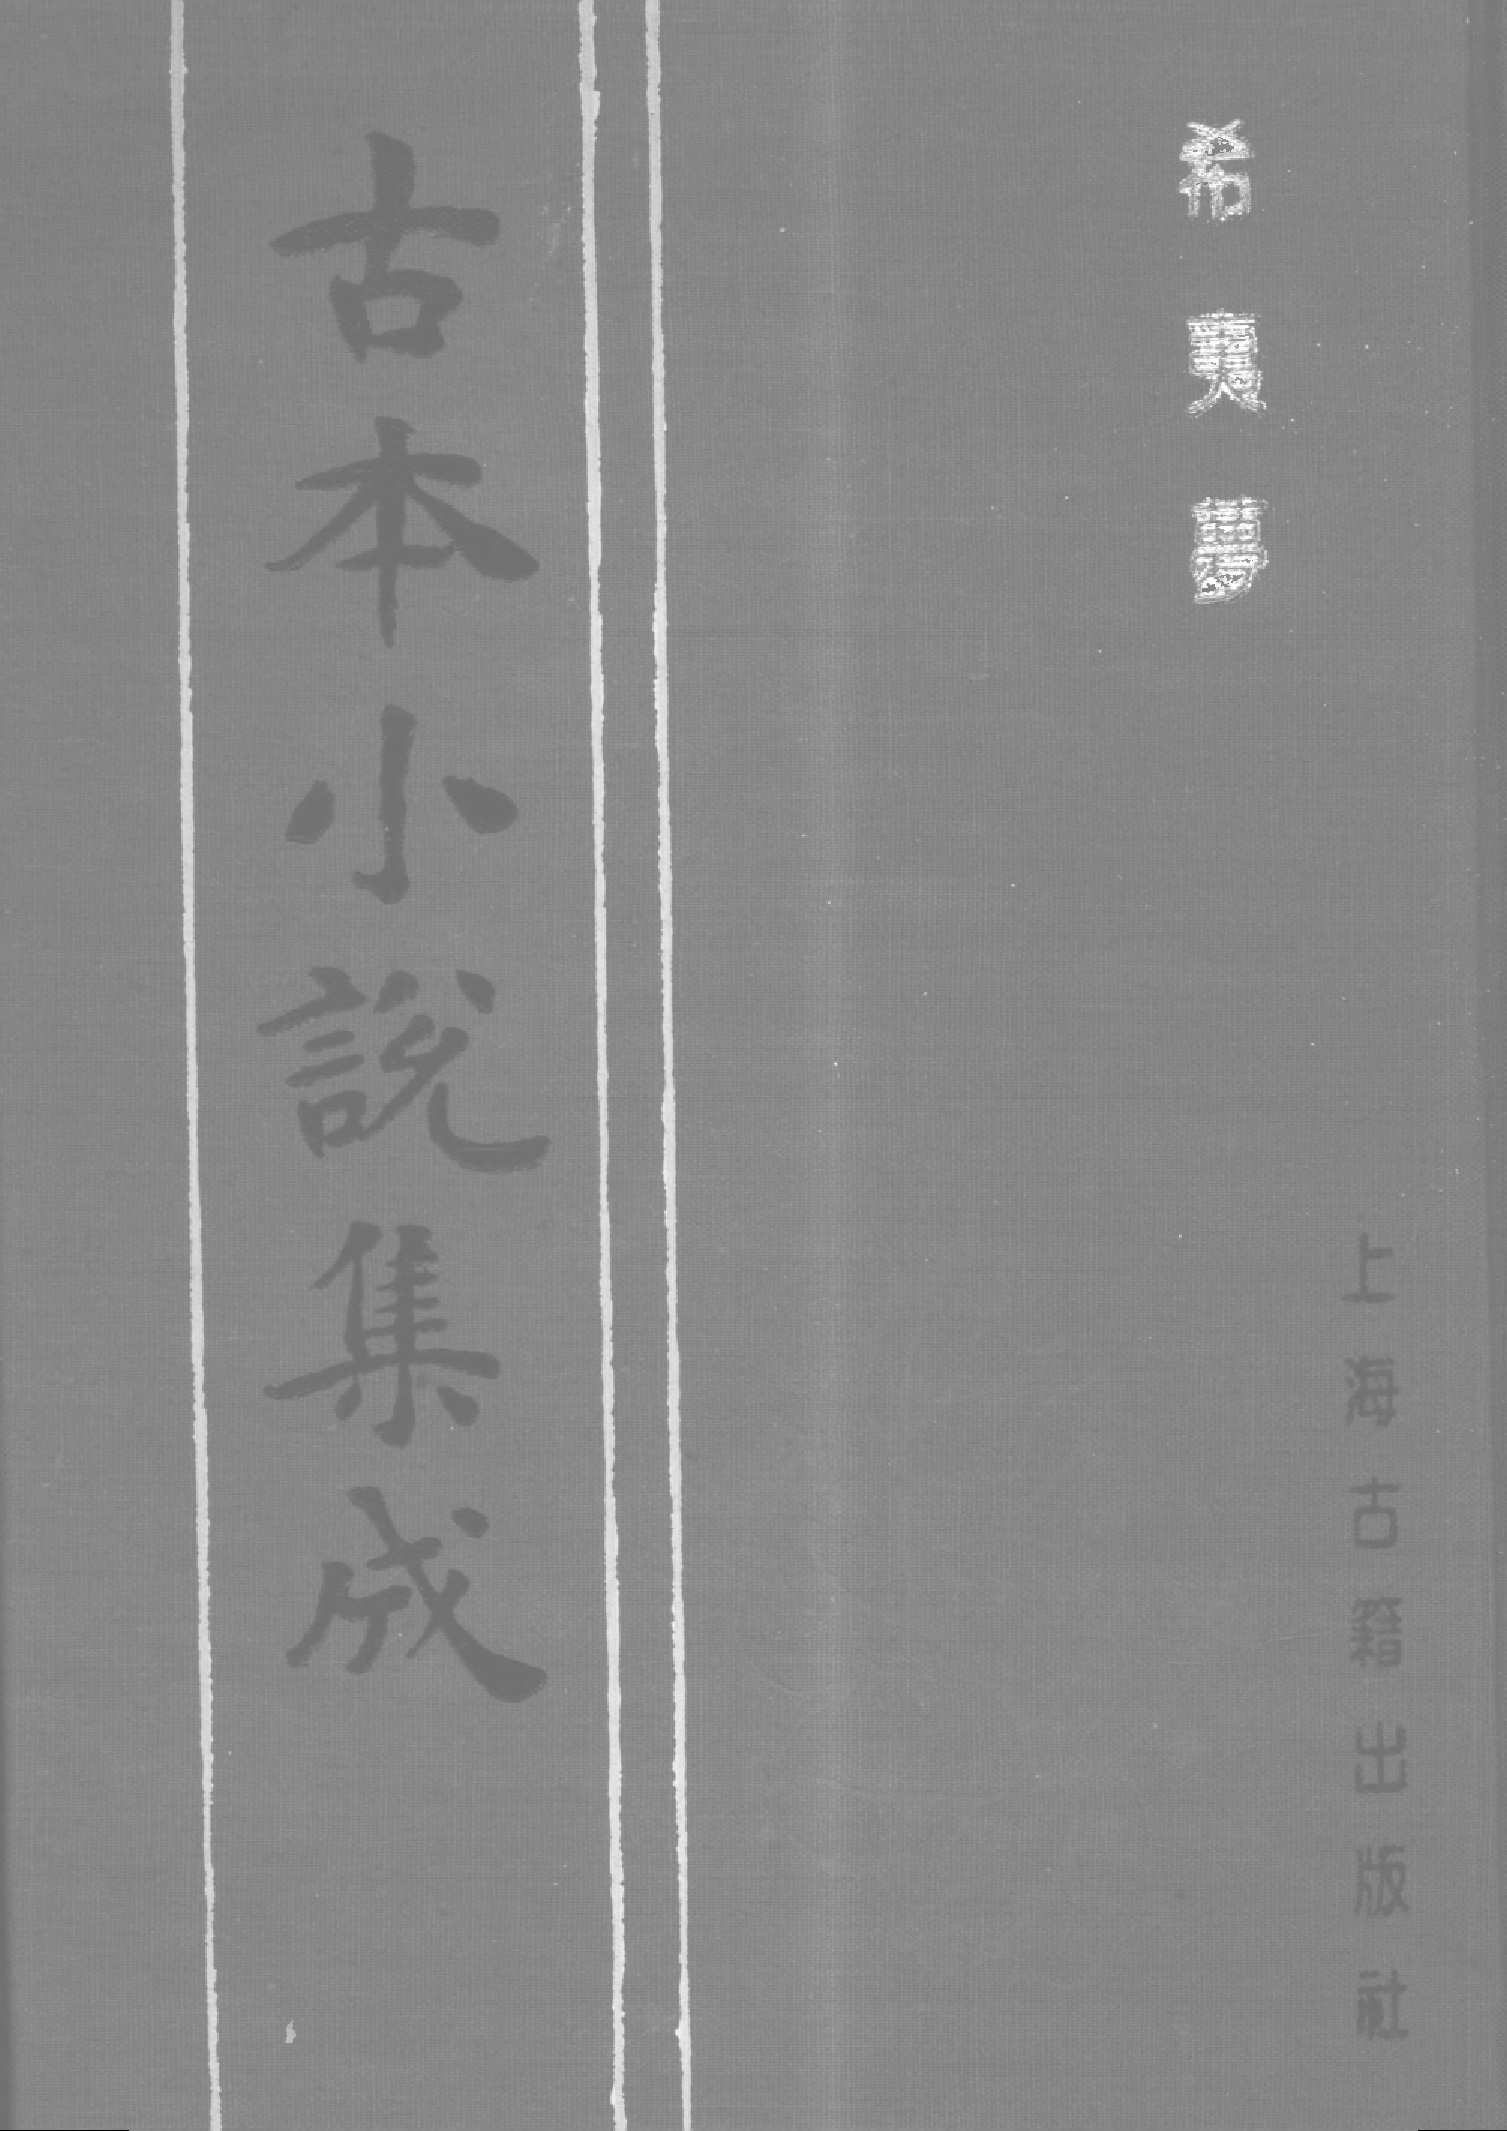 古本小說集成
希夷夢
上海古籍出版社